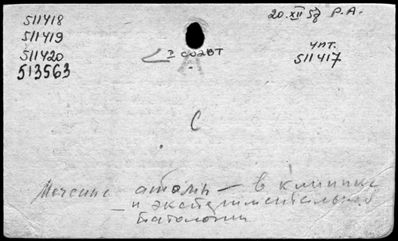 511418
511419
511420
513563
20.XII 58 Р.А.
чит.
511417
С
Меченые атомы — в клинике
и экспериментальной
патологии